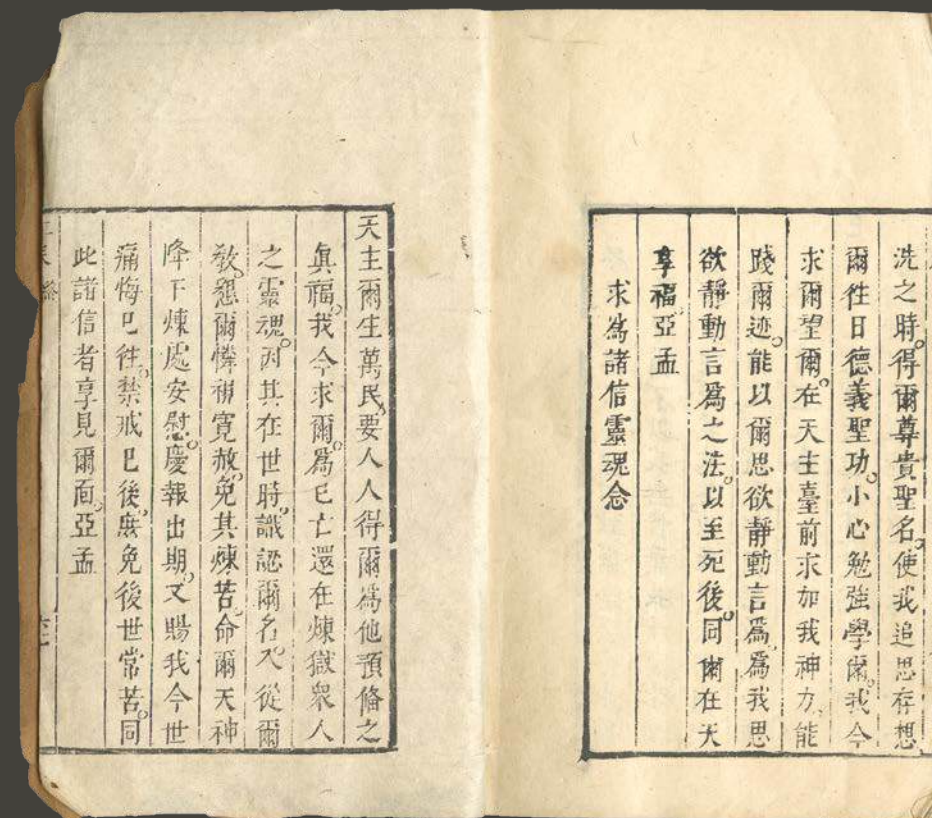 洗之時。得爾尊貴聖名。使我追思存想
爾徃日德義聖功。小心勉強學爾。我今
求爾望爾。在天主臺前求加我神力。能
踐爾迹。能以爾思欲靜動言爲。爲我思
欲靜動言爲之法。以至死後。同爾在天
享福。亞孟
求爲諸信靈魂念
天主爾生萬民。要人人得爾爲他預備之
眞福。我今求爾。爲已亡還在煉獄衆人
之靈魂。因其在世時。識認爾名。又從爾
敎。懇爾憐視寬赦。免其煉苦。命爾天神
降下煉處安慰。慶報出期。又賜我今世
痛悔已徃。禁戒已後。庶免後世常苦。同
此諸信者享見爾面。亞孟